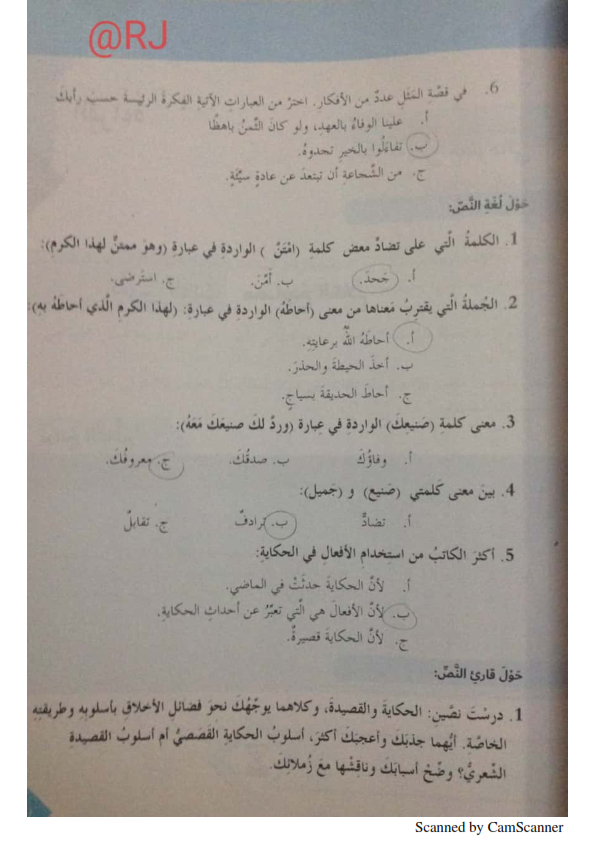 @RJ
6. في قصّةِ المَثَلِ عددٌ من الأفكارِ. اخترْ من العباراتِ الآتيةِ الفِكرةَ الرئيسةَ حسبَ رأيكَ
أ. علينا الوفاءُ بالعهدِ، ولو كانَ الثّمنُ باهظًا
ب. تفاءَلُوا بالخيرِ تجدوهُ.
ج. من الشّجاعةِ أن تبتعدَ عن عادةٍ سيّئةٍ.
حَوْلَ لُغَةِ النَّصِّ:
1. الكلمةُ الّتي على تضادٍّ معض كلمة (امْتَنّ ) الواردةِ في عبارة (وهوَ ممتنٌّ لهذا الكرم):
أ. جَحدَ. ب. أمّنَ. ج. استَرضى.
2. الجُملةُ الّتي يقتربُ مَعناها من معنى (أحاطَهُ) الواردةِ في عبارةِ: (لهذا الكرمِ الّذي أحاطَهُ بهِ):
أ. أحاطَهُ اللّهُ برعايتِهِ.
ب. أخذَ الحيطةَ والحذرَ.
ج. أحاطَ الحديقةَ بسياجٍ.
3. معنى كلمةِ (صَنيعكَ) الواردةِ في عبارة (وردَّ لكَ صنيعَكَ مَعَهُ):
أ. وفاؤُكَ ب. صدقُكَ. ج. معروفُكَ.
4. بينَ معنى كَلمتي (صَنيع) و (جَميل):
أ. تضادٌّ ب. ترادفٌ ج. تقابلٌ
5. أكثرَ الكاتبُ من استخدامِ الأفعالِ في الحكايةِ:
أ. لأنّ الحكايةَ حدثَتْ في الماضي.
ب. لأنّ الأفعالَ هي الّتي تعبّرُ عن أحداثِ الحكايةِ.
ج. لأنّ الحكايةَ قصيرةٌ.
حَوْلَ قارِئِ النَّصِّ:
1. درسْتَ نصّين: الحكايةَ والقصيدةَ، وكلاهما يوجّهُكَ نحوَ فضائلِ الأخلاقِ بأسلوبِهِ وطريقتِهِ
الخاصّةِ. أيُّهما جذبَكَ وأعجبَكَ أكثرَ، أسلوبُ الحكايةِ القَصَصيُّ أم أسلوبُ القصيدةِ
الشّعريُّ؟ وضّحْ أسبابَكَ وناقِشْها معَ زُملائِكَ.
Scanned by CamScanner